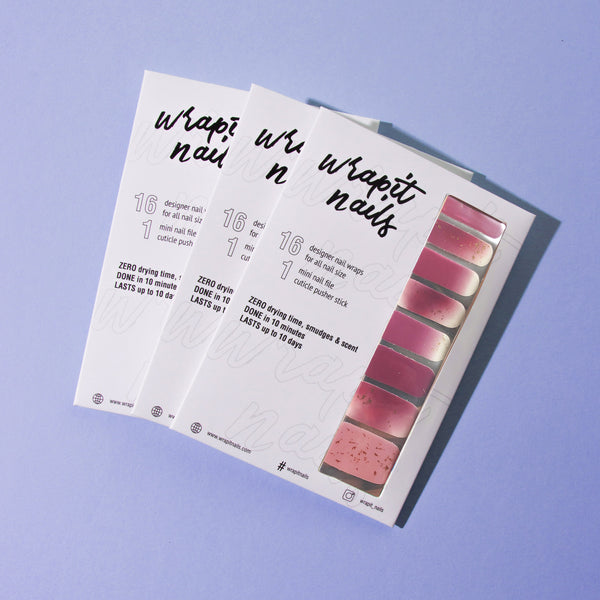 wrapit
nails
16 designer nail
for all nail size
1 mini nail file
cuticle pusher
ZERO drying time,
DONE in 10 minutes
LASTS up to 10 days
wrapit
nails
16
1
ZERO
DONE in
LASTS up
wrapit
nails
16 designer nail wraps
for all nail size
1 mini nail file
cuticle pusher stick
ZERO drying time, smudges & scent
DONE in 10 minutes
LASTS up to 10 days
www.wrapitnails.com
#
wrapitnails
wrapit_nails